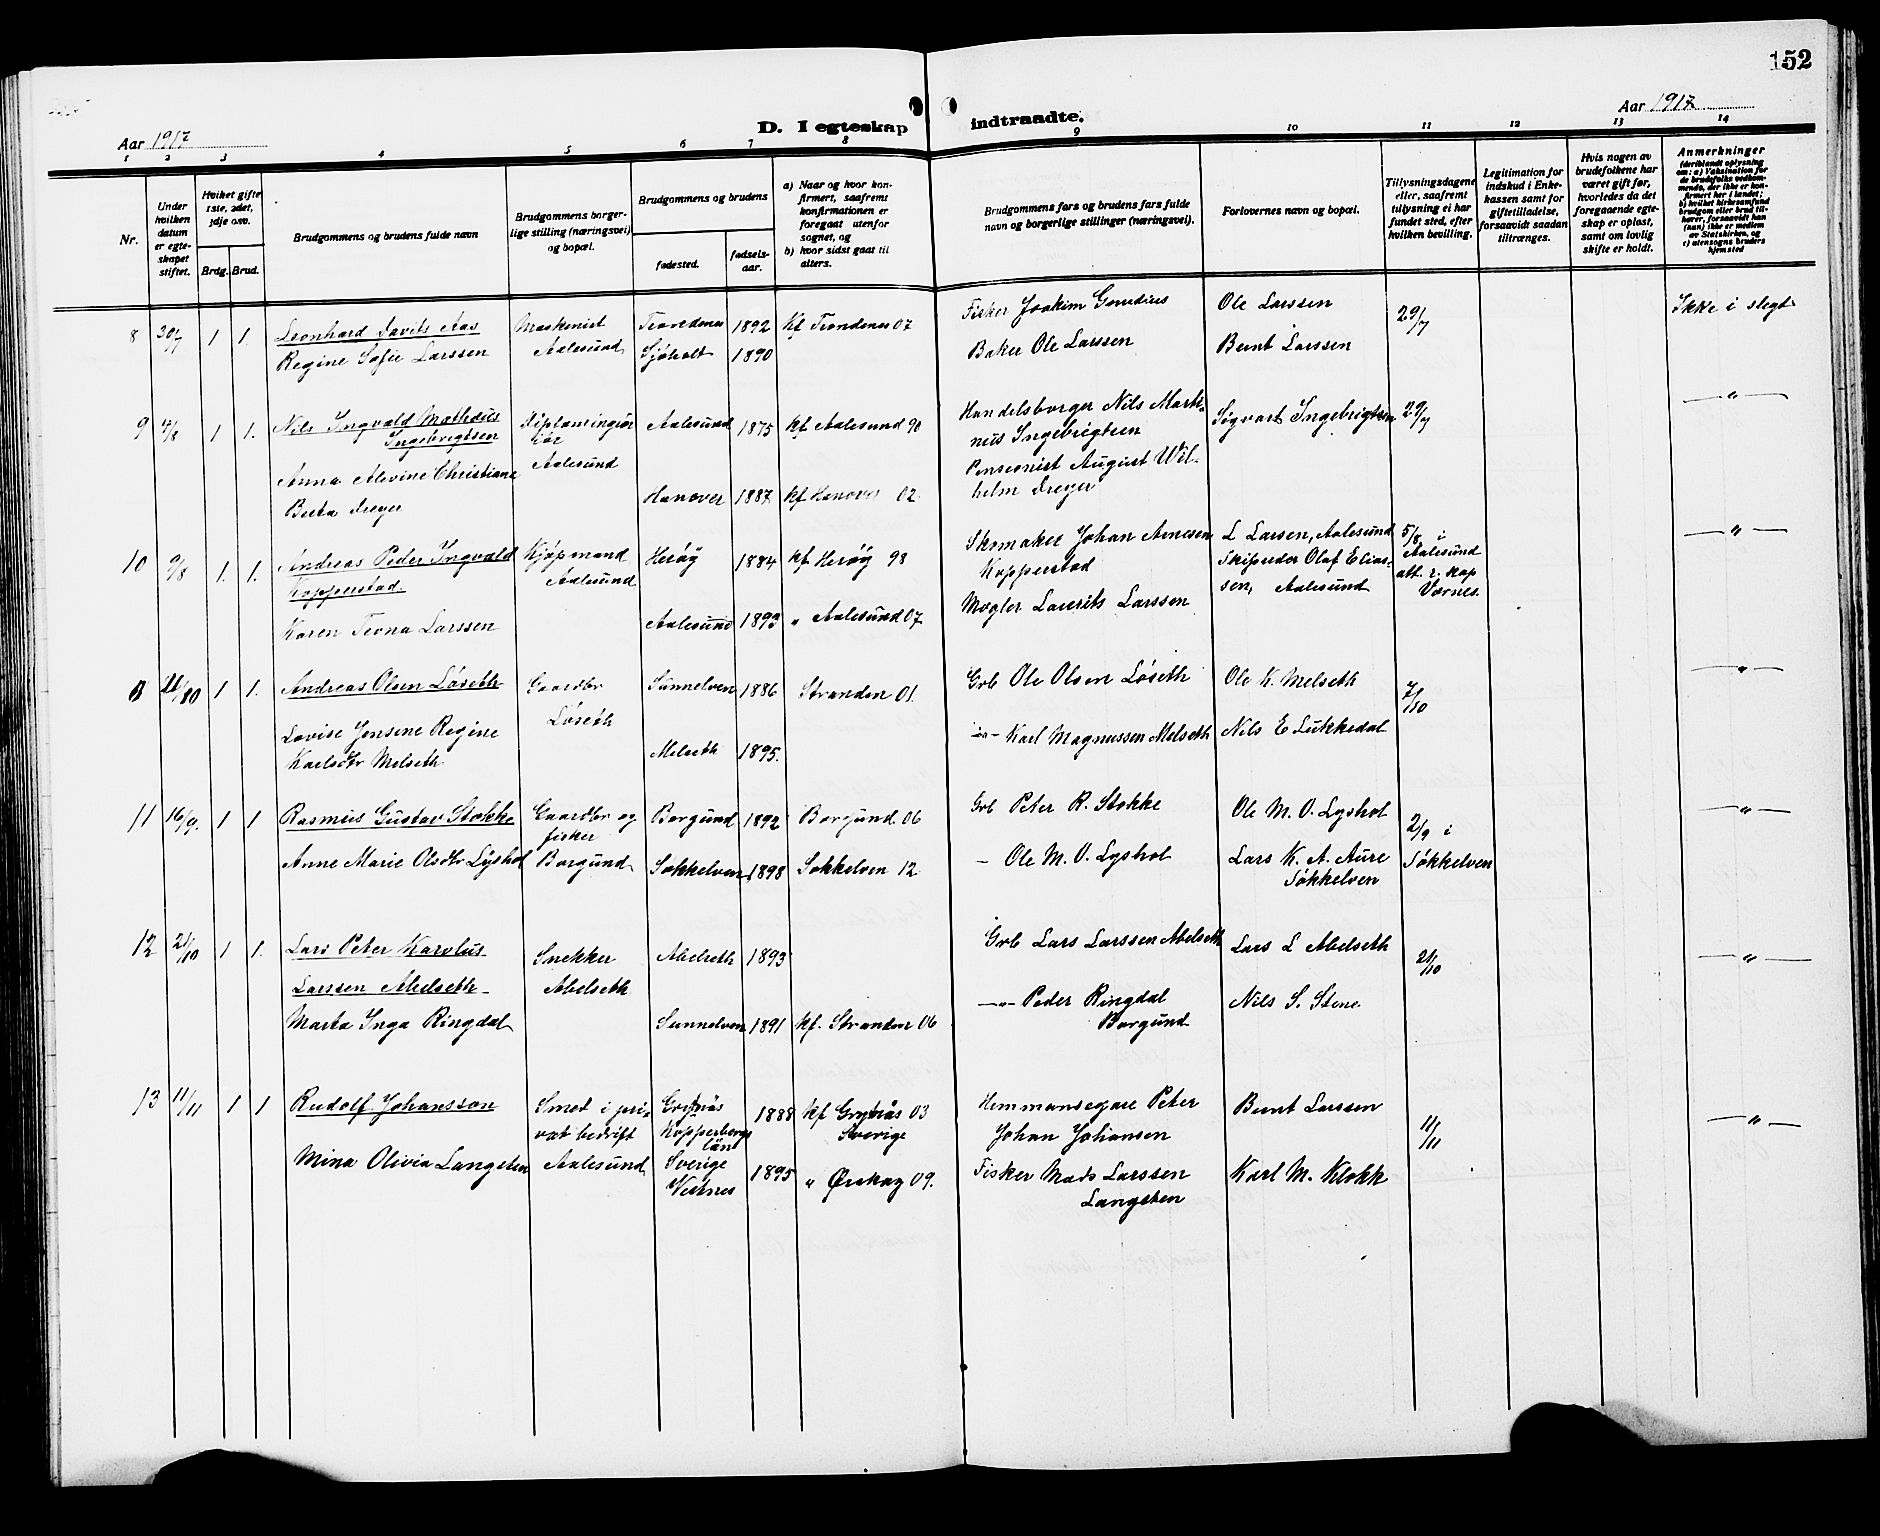 152
Aar 1917
D. I egteskap indtraadte.
Aar 1917
1 2 3 4 5 6 7 8 9 10 11 12 13 14
Nr.
Under hvilken datum er egteskapet stiftet.
Hvilket gifte 1ste, 2det, 3dje osv.
Brdg. Brud.
Brudgommens og brudens fulde navn
Brudgommens borgerlige stilling (næringsvei) og bopæl.
Brudgommens og brudens
fødested.
fødselsaar.
a) Naar og hvor konfirmert, saafremt konfirmationen er foregaat utenfor sognet, og
b) hvor sidst gaat til alters.
Brudgommens fars og brudens fars fulde navn og borgerlige stillinger (næringsvei).
Forlovernes navn og bopæl.
Tillysningsdagene eller, saafremt tillysning ei har fundet sted, efter hvilken bevilling.
Legitimation for indskud i Enkekassen samt for giftetilladelse, forsaavidt saadan tiltrænges.
Hvis nogen av brudefolkene har været gift før, hvorledes da det foregaaende egteskap er opløst, samt om lovlig skifte er holdt.
Anmerkninger (deriblandt oplysning om: a) Vaksination for de brudefolks vedkommende, der ikke er konfirmert her i landet; b) hvilket kirkesamfund brudgom eller brud tilhører, forsaavidt han (hun) ikke er medlem av Statskirken, og c) utensogns bruders hjemsted
8 30/7 1 1 Leonhard Davits Aas Maskenist Trondenes 1892 Kf Trondenes 07 Fisker Joakim Ole Larssen 29/7 Ikke i slegt
Regine Sofie Larssen Aalesund Sjøholt 1890 Baker Ole Larssen Bernt Larssen
9 4/8 1 1. Nils Ingvald Mathæus Aalesund 1875 kf Aalesund 90 Handelsborger Nils Mark- Sigvart Ingebrigtsen 29/7 — " —
Ingebrigtsen Aalesund nus Ingebrigtsen
Anna Alevine Christiane Pensionist August Wil-
Berta Dreyer Hanover 1887 kf Hanover 02. helm Dreyer
10 9/8 1. 1. Andreas Peder Ingvald Kjøpmand Herøy 1884 kf. Herøy 98 Skomaker Johan Arnesen L Larsen, Aalesund 5/8 i — " —
Kopperstad. Aalesund Kopperstad Skipsreder Olaf Elias- Aalesund
Mægler Laurits Larssen sen, Aalesund att. r. kap
Karen Teona Larssen Aalesund 1893 " Aalesund 07 Værnes.
1 1. Andreas Olsen Løseth Gaardbr Sunnelven 1886 Stranden 01. Grb Ole Olsen Løseth Ole K. Melseth 7/10 — " —
Lovise Jensine Regine Løseth
Karlsdtr Melseth Melseth 1895. —"— Karl Magnussen Melseth Nils E Lukkedal
11 16/9. 1 1 Rasmus Gustav Stokke Gaardbr og Borgund 1892 Borgund 06 Grb Peter R. Stokke Ole M. O. Lyshol 2/9 i — " —
fisker
Anne Marie Olsdtr Lyshol Borgund Søkkelven 1898 Søkkelven 12. — Ole M. O. Lyshol Lars K. A. Aure Søkkelven
Søkkelven
12 21/10 1 1. Lars Peter Karolus Snekker Abelseth 1893 Grb Lars Larssen Abelseth Lars L Abelseth 21/10 — " —
Larssen Abelseth Abelseth
Marta Inga Ringdal Sunnelven 1891 kf. Stranden 06 —"— Peder Ringdal Nils S. Stene
Borgund
13 11/11 1 1 Rudolf Johansson Smet i pri- Grytnäs 1888 kf Grytnäs 03 Hemmansegare Peter Bernt Larssen 11/11 — " —
vat bedrift Kopperbergs Sverige Johan Johansen
län
Mina Olivia Langsten Aalesund Sverige 1895 " Ørskog 09. Fisker Mads Larssen Karl M. Klokk
Vestnes Langsten